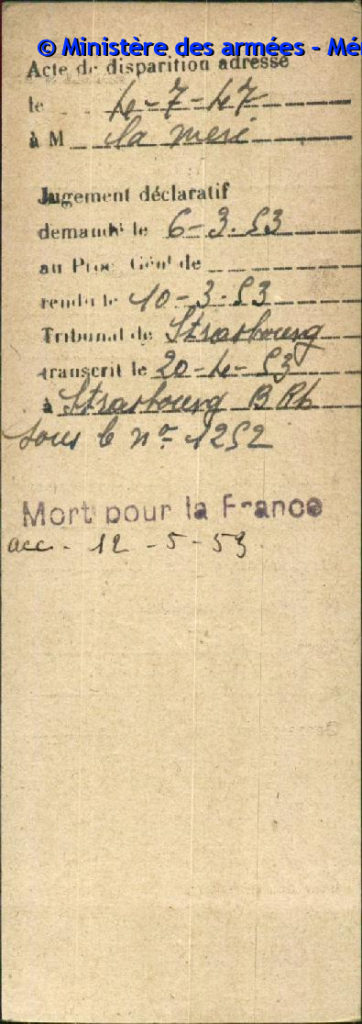 © Ministère des armées - Mé
Acte de disparition adressé
le 4-7-47
à M la mère
Jugement déclaratif
demandé le 6-3.53
au Proc. Génl de
rendu le 10-3-53
Tribunal de Strasbourg
transcrit le 20-4-53
à Strasbourg B Rh
sous le nº 1252
Mort pour la France
acc - 12-5-53